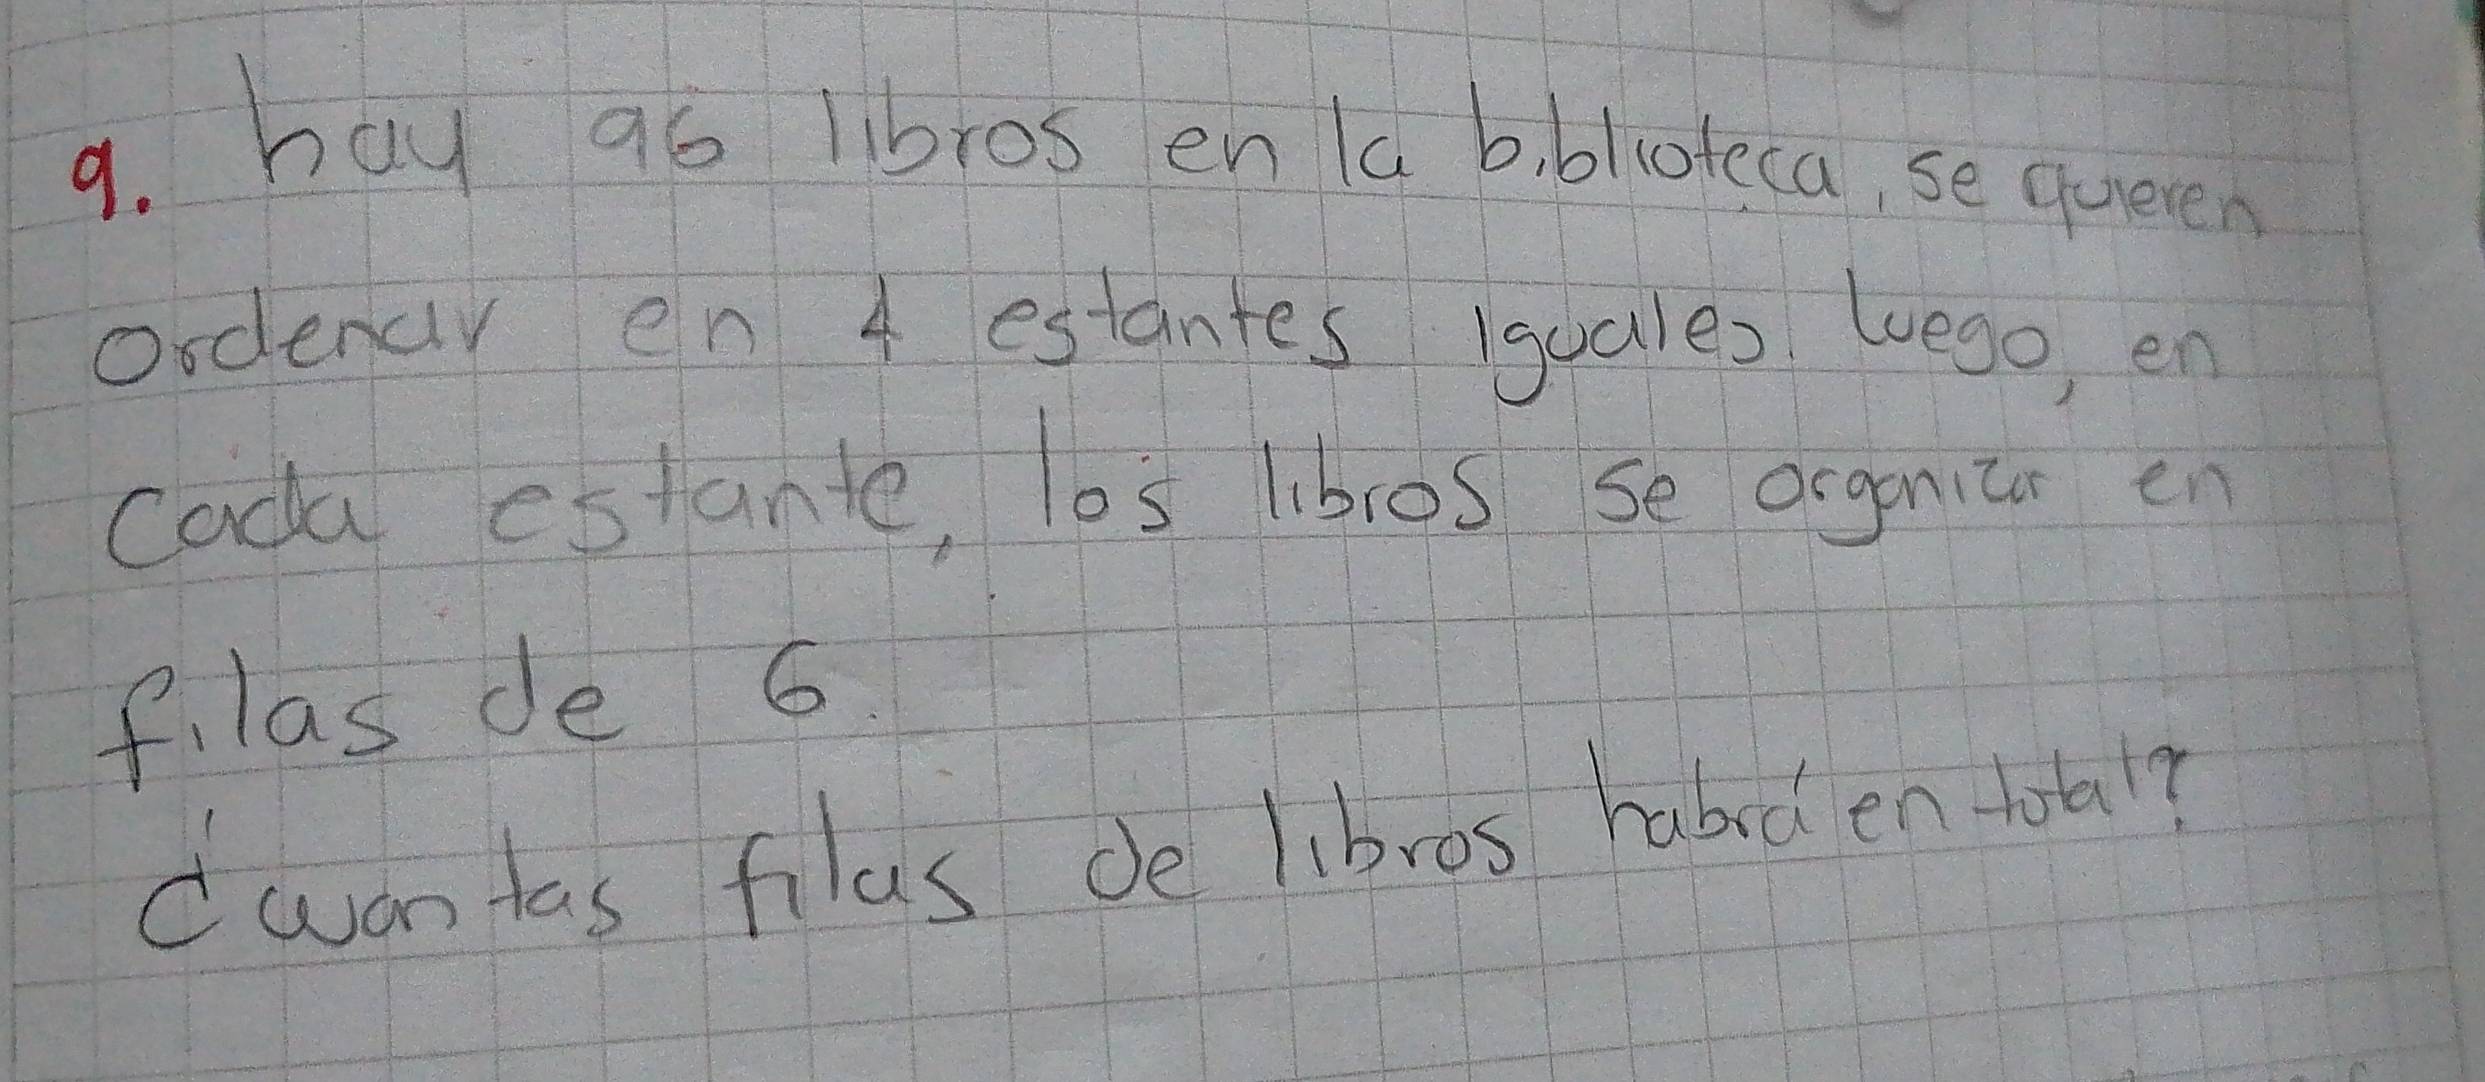 9. hay 96 libros en la biblioteca, se quieren
ordenar en 4 estantes iguales. luego, en
cada estante, los libros se organizar en
filas de 6.
¿cuantas filas de libros habrá en total?